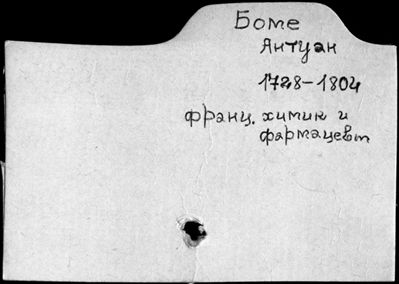 Боме
Антуан
1728-1804
франц. химик и
фармацевт